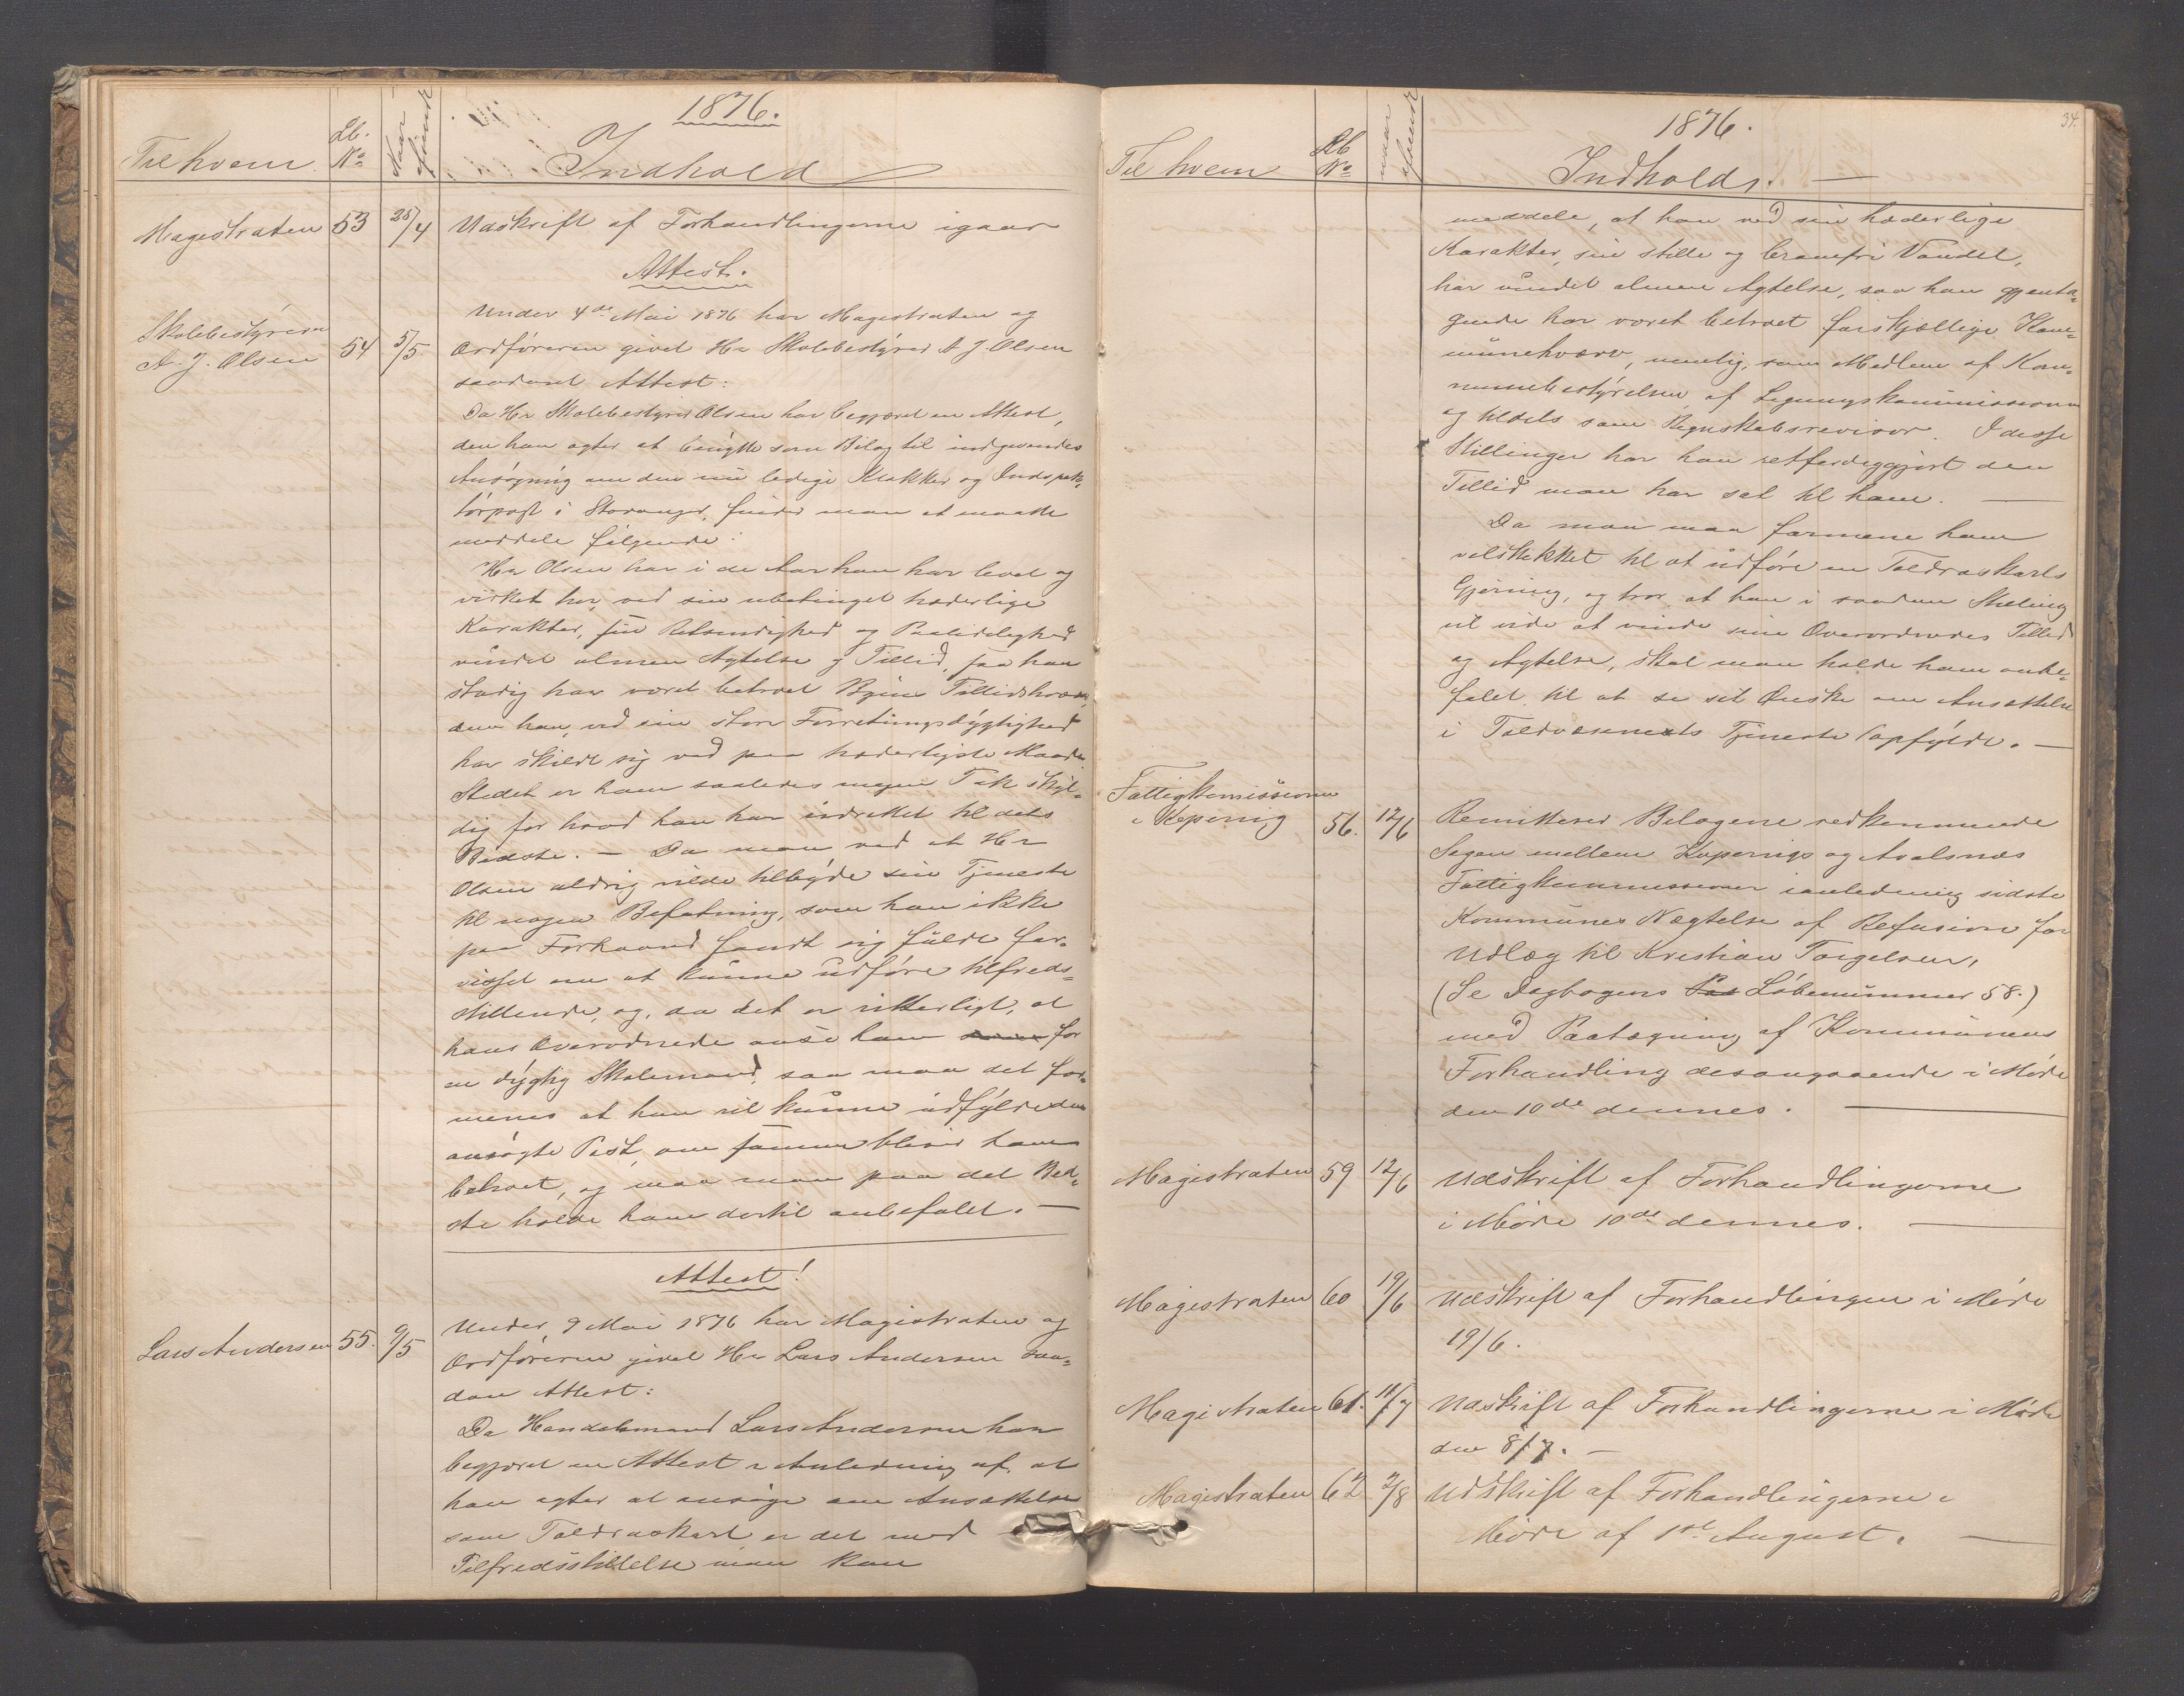 1876.
Til hvem. Lb. No Naar afsendt Indhold
Magistraten 53 25/4 Udskrift af Forhandlingerne igaar
Attest.
Skolebestyreren
A. J. Olsen 54 5/5
Under 4de Mai 1876 har Magistraten og
Ordføreren givet Hr Skolebestyrer A J. Olsen
saadant Attest:
Da Hr Skolebestyrer Olsen har begjæret en Attest,
den han agter at benytte som Bilag til indgivendes
Ansøgning om den nu ledige Klokker og Inspek-
törpost i Stavanger, finder man at maatte
meddele følgende:
Hr Olsen har i de Aar han har levet og
virket her, ved sin ubetinget hæderlige
Karakter, sin Retsindighed og Paalidelighed
vundet almen Agtelse og Tillid, saa han
stadig har været betroet Byens Tillidshverv,
dem han, ved sin store Forretningsdygtighed
har skildt sig ved paa hæderligste Maade.
Stedet er ham saaledes megen Tak skyl-
dig for hvad han har indvirket til dets
Bedste. — Da man ved at Hr
Olsen aldrig vilde tilbyde sin Tjeneste
til nogen Befatning, som han ikke
paa Forhaand fandt sig fuldt for-
visset om at kunne udføre tilfreds-
stillende, og, da det er vitterligt, at
hans Overordnede anse ham for
en dygtig Skolemand, saa maa det for-
menes at han vil kunne udfylde den
ansøgte Post, om samme bliver ham
betroet, og maa man paa det Bed-
ste holde ham dertil anbefalet. —
Attest!
Lars Andersen 55. 9/5
Under 9 Mai 1876 har Magistraten og
Ordføreren givet Hr Lars Andersen saa-
dan Attest:
Da Handelsmand Lars Andersen har
begjæret en Attest i Anledning af, at
han agter at ansøge om Ansættelse
som Toldraskarl, er det med
Tilfredsstillelse man kan
34.
1876.
Til hvem Lb No naar afsendt Indholds. —
meddele, at han ved sin hæderlige
Karakter, sin stille og Vandel,
har vundet almen Agtelse, saa han gjenta-
gende har været betroet forskjællige Kom-
munehverv, nemlig, som Medlem af Kom-
munebestyrelsen, af Ligningskommissionen
og tildels som Regnskabsrevisor. I disse
Stillinger har han retfærdiggjort den
Tillid man har sat til ham. —
Da man maa formene ham
velskikket til at udføre en Toldraskarls
Gjerning, og tror, at han i saadan Stilling
vil vide at vinde sine Overordnedes Tillid
og Agtelse, skal man holde ham anbe-
falet til at se sit Ønske om Ansættelse
i Toldvæsenets Tjeneste opfyldt. —
Fattigkomissionen
i Kopervig 56. 12/6 Remitteres Bilagene vedkommende
Sagen mellem Kopervigs og Avalsnæs
Fattigkommissioner ianledning sidste
Kommunes Nægtelse af Refusion for
Udlæg til Kristian Torgelsen,
(Se Dagbogens Løbenummer 58.)
med Paategning af Kommunens
Forhandling desangaaende i Møde
den 10de dennes. —
Magistraten 59 12/6 Udskrift af Forhandlingerne
i Møde 10de dennes. —
Magistraten 60 19/6 Udskrift af Forhandlingen i Møde
19/6.
Magistraten 61. 11/7 Udskrift af Forhandlingerne i Møde
den 8/7. —
Magistraten 62 2/8 Udskrift af Forhandlingerne i
Møde af 1ste August. —